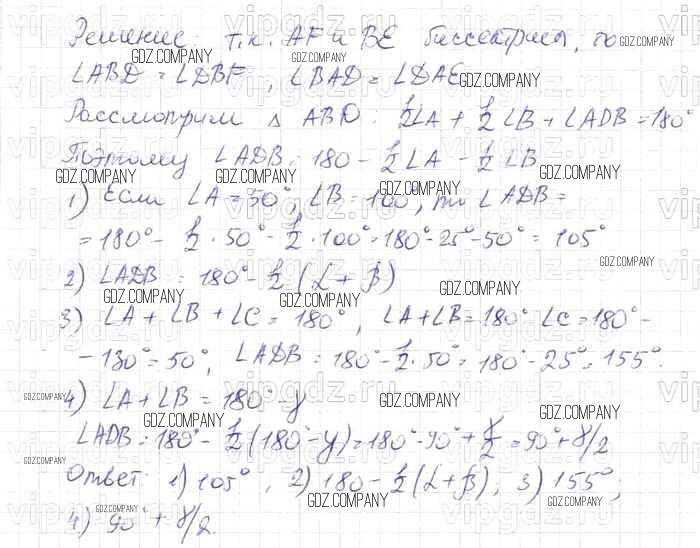 Решение: т.к. AF и BE биссектрисы, то
∠ABD = ∠DBF, ∠BAD = ∠DAE
Рассмотрим △ ABD: 1/2∠A + 1/2∠B + ∠ADB = 180°
Поэтому ∠ADB = 180 - 1/2∠A - 1/2∠B
1) Если ∠A = 50°, ∠B = 100°, то ∠ADB =
= 180° - 1/2 · 50° - 1/2 · 100° = 180° - 25° - 50° = 105°
2) ∠ADB = 180° - 1/2 (α + β)
3) ∠A + ∠B + ∠C = 180°, ∠A + ∠B = 180° ∠C = 180° -
- 130° = 50°, ∠ADB = 180° - 1/2 · 50° = 180° - 25° = 155°.
4) ∠A + ∠B = 180° - γ
∠ADB = 180° - 1/2 (180° - γ) = 180° - 90° + γ/2 = 90° + γ/2
Ответ: 1) 105°, 2) 180 - 1/2 (α + β), 3) 155°;
4) 90° + γ/2.